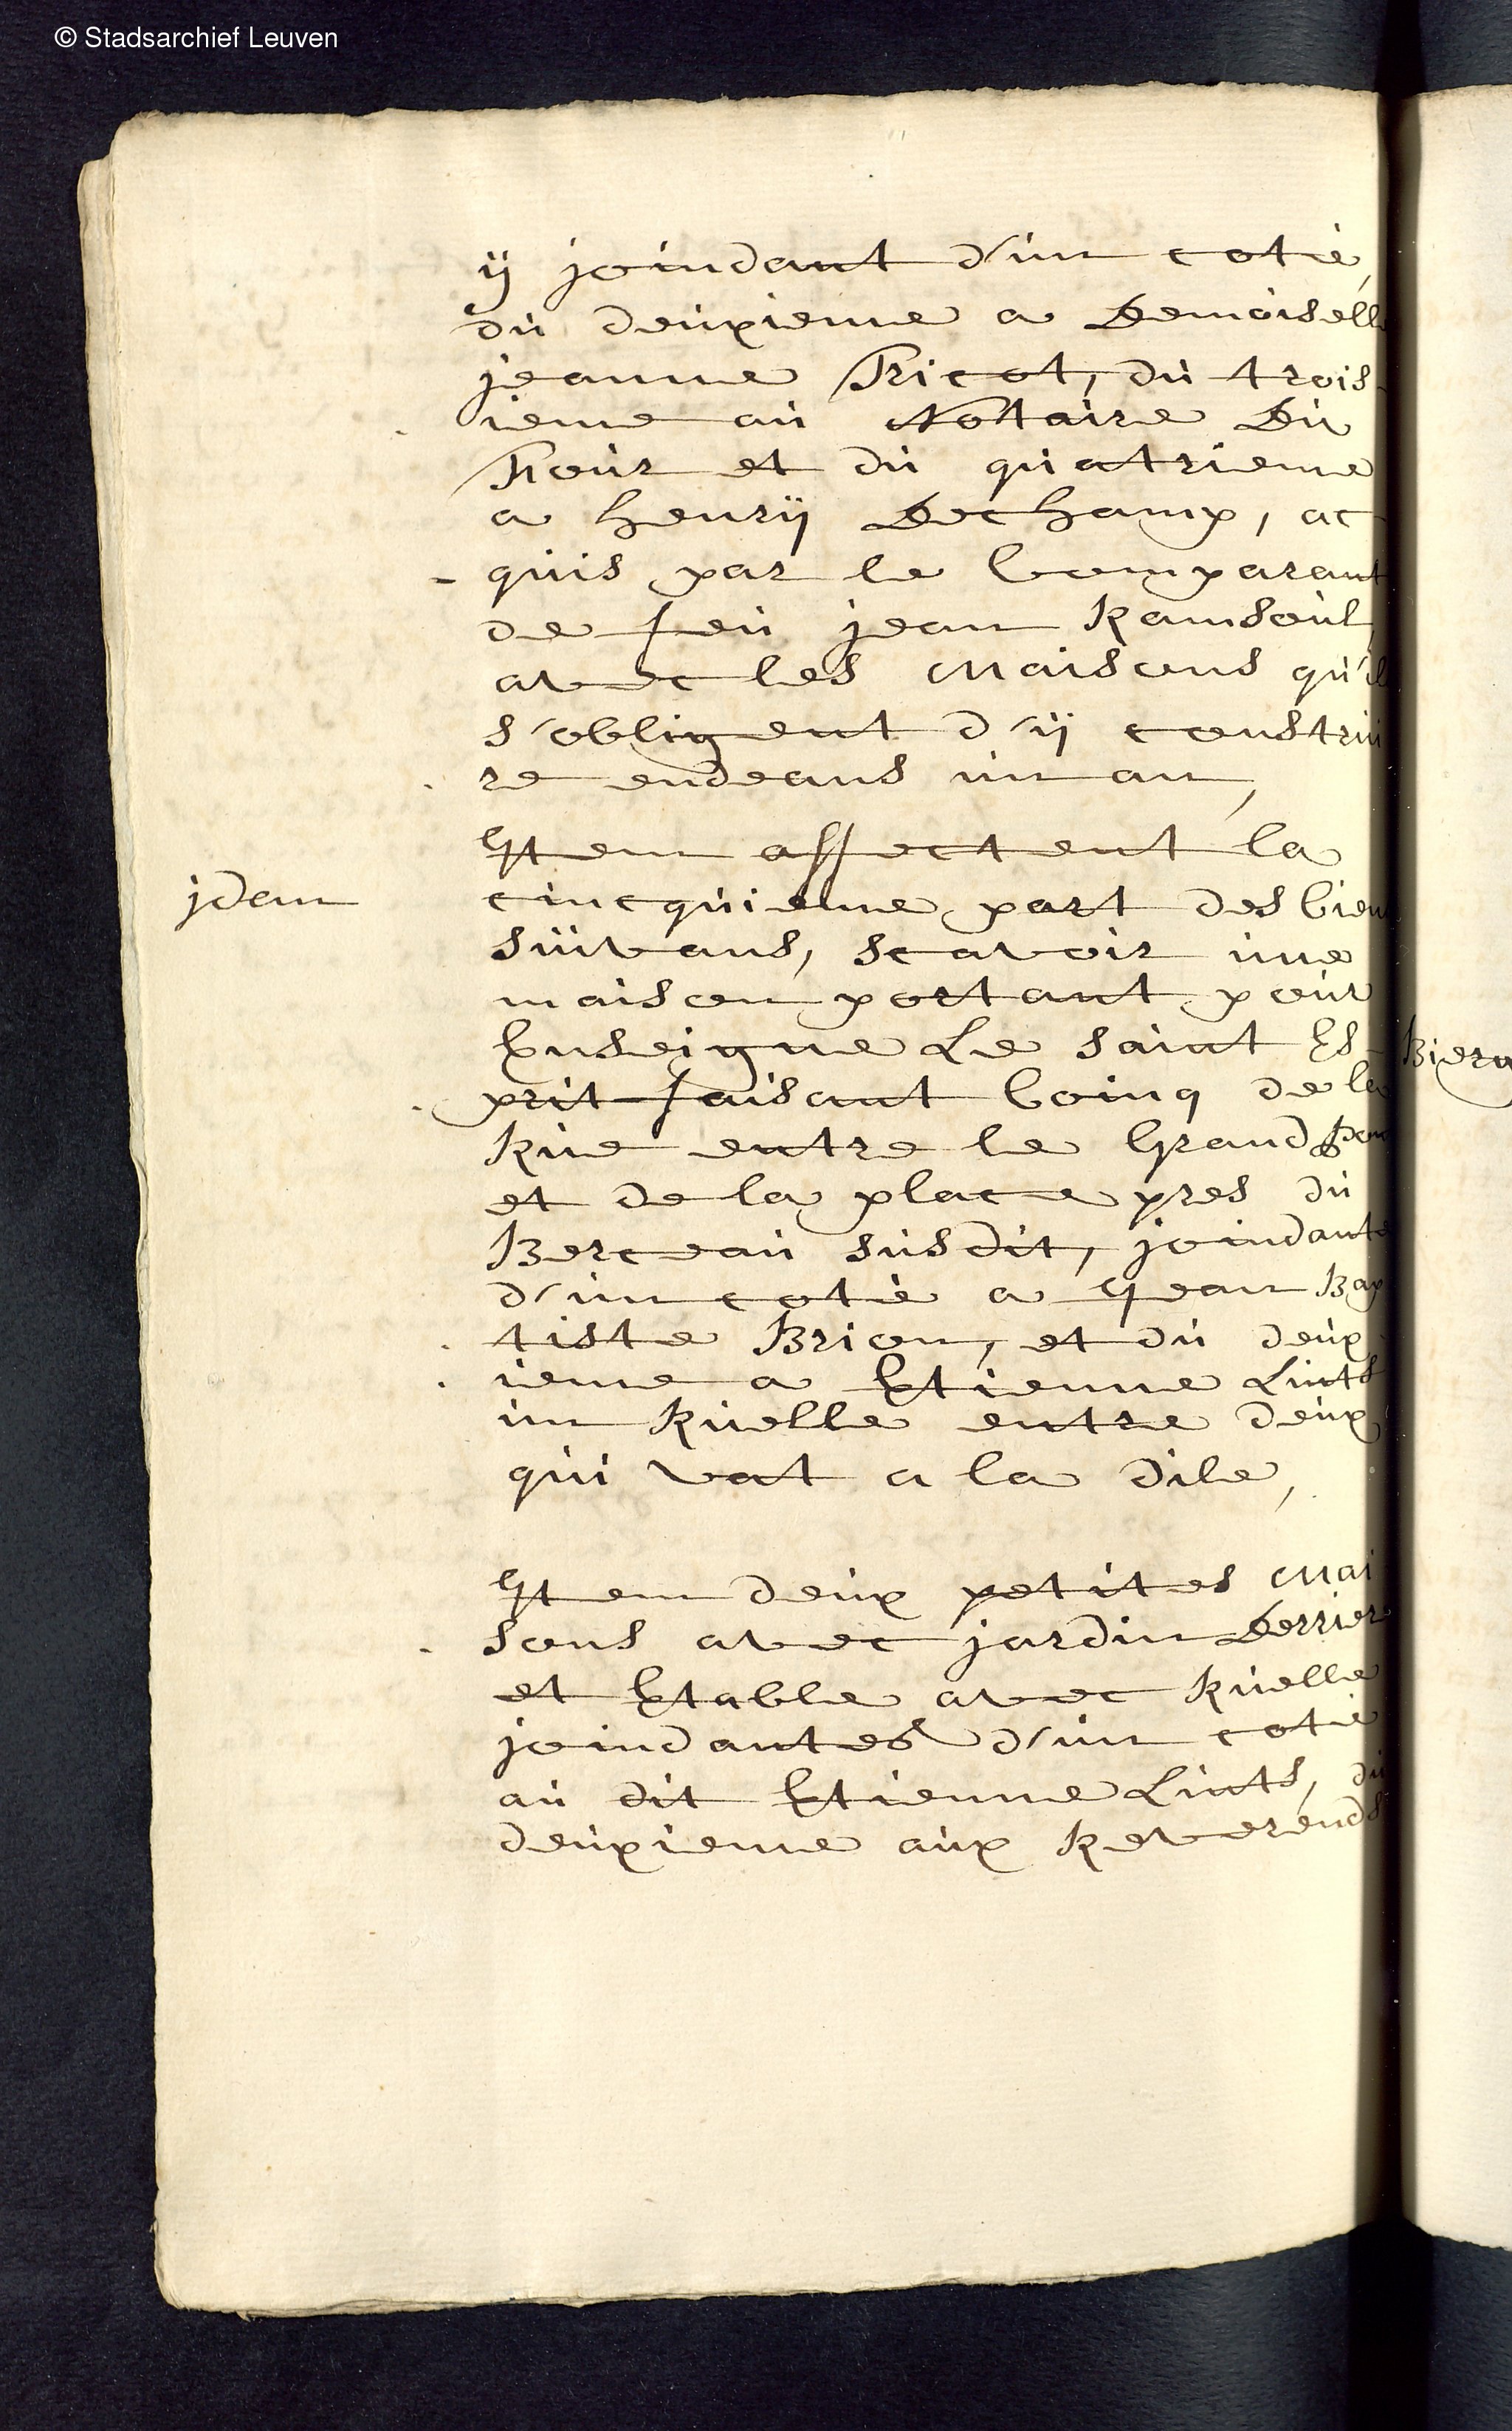 © Stadsarchief Leuven
ÿ joindant d'un cotié,
du deuxieme a Demoiselle
jeanne Tricot, du trois-
ieme au Nottaire Du
Four et du quatrieme
a henrÿ Dechamp, ac
quis par le Comparant
de feu jean Ramsoul
avec les Maisons qu'il
s'obligent d'ÿ constrüi
re endeans un an,
Jtem affectent la
jdem
cincquieme part des bien
suivans, scavoir une
maison portant pour
Enseigne Le saint Es-
prit faisant Coing de la
Rue entre le Grand
et de la place pres du
Berceau susdit, joindante
d'un cotié a Jean Bap
tiste Brion, et du deux
ieme a Etienne Lints
un Ruelle entre deux
qui vat a la dile,
Jtem deux petites Mai
sons avec jardin Derrier
et Etable avec Ruelle
joindantes d'un cotié
au dit Etienne Lints, du
deuxieme aux Reverends